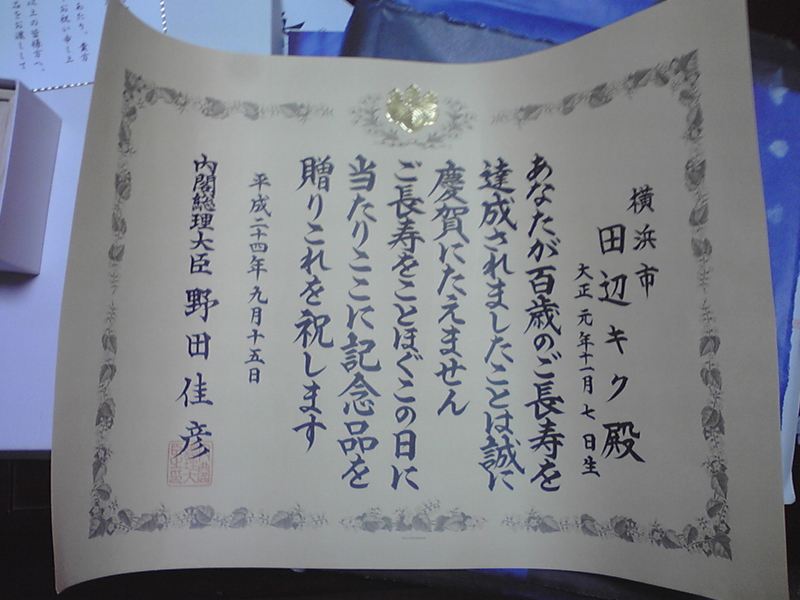 横浜市
田辺キク殿
大正元年十一月七日生
あなたが百歳のご長寿を
達成されましたことは誠に
慶賀にたえません
ご長寿をことほぐこの日に
当たりここに記念品を
贈りこれを祝します
平成二十四年九月十五日
内閣総理大臣 野田佳彦